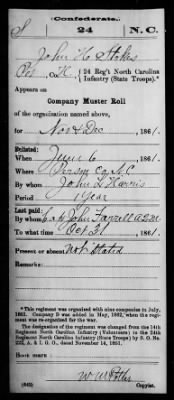 Confederate.
S 24 N. C.
John H Stokes
Co. H, 24 Reg't North Carolina
Infantry (State Troops).*
Appears on
Company Muster Roll
of the organization named above,
for Nov & Dec, 1861.
Enlisted:
When June 6, 1861.
Where Person Co. N.C.
By whom John L Harris
Period 1 year
Last paid:
By whom Capt John Farrell A.Q.M.
To what time Oct 31, 1861.
Present or absent Not Stated
Remarks:
*This regiment was organized with nine companies in July,
1861. Company D was added in May, 1862, when the regi-
ment was re-organized by order of the war.
The designation of the regiment was changed from the 14th
Regiment North Carolina Infantry (Volunteers) to the 24th
Regiment North Carolina Infantry (State Troops) by S. O. No.
222, A. & I. G. O., dated November 14, 1861.
Book mark:
(642) Copyist.